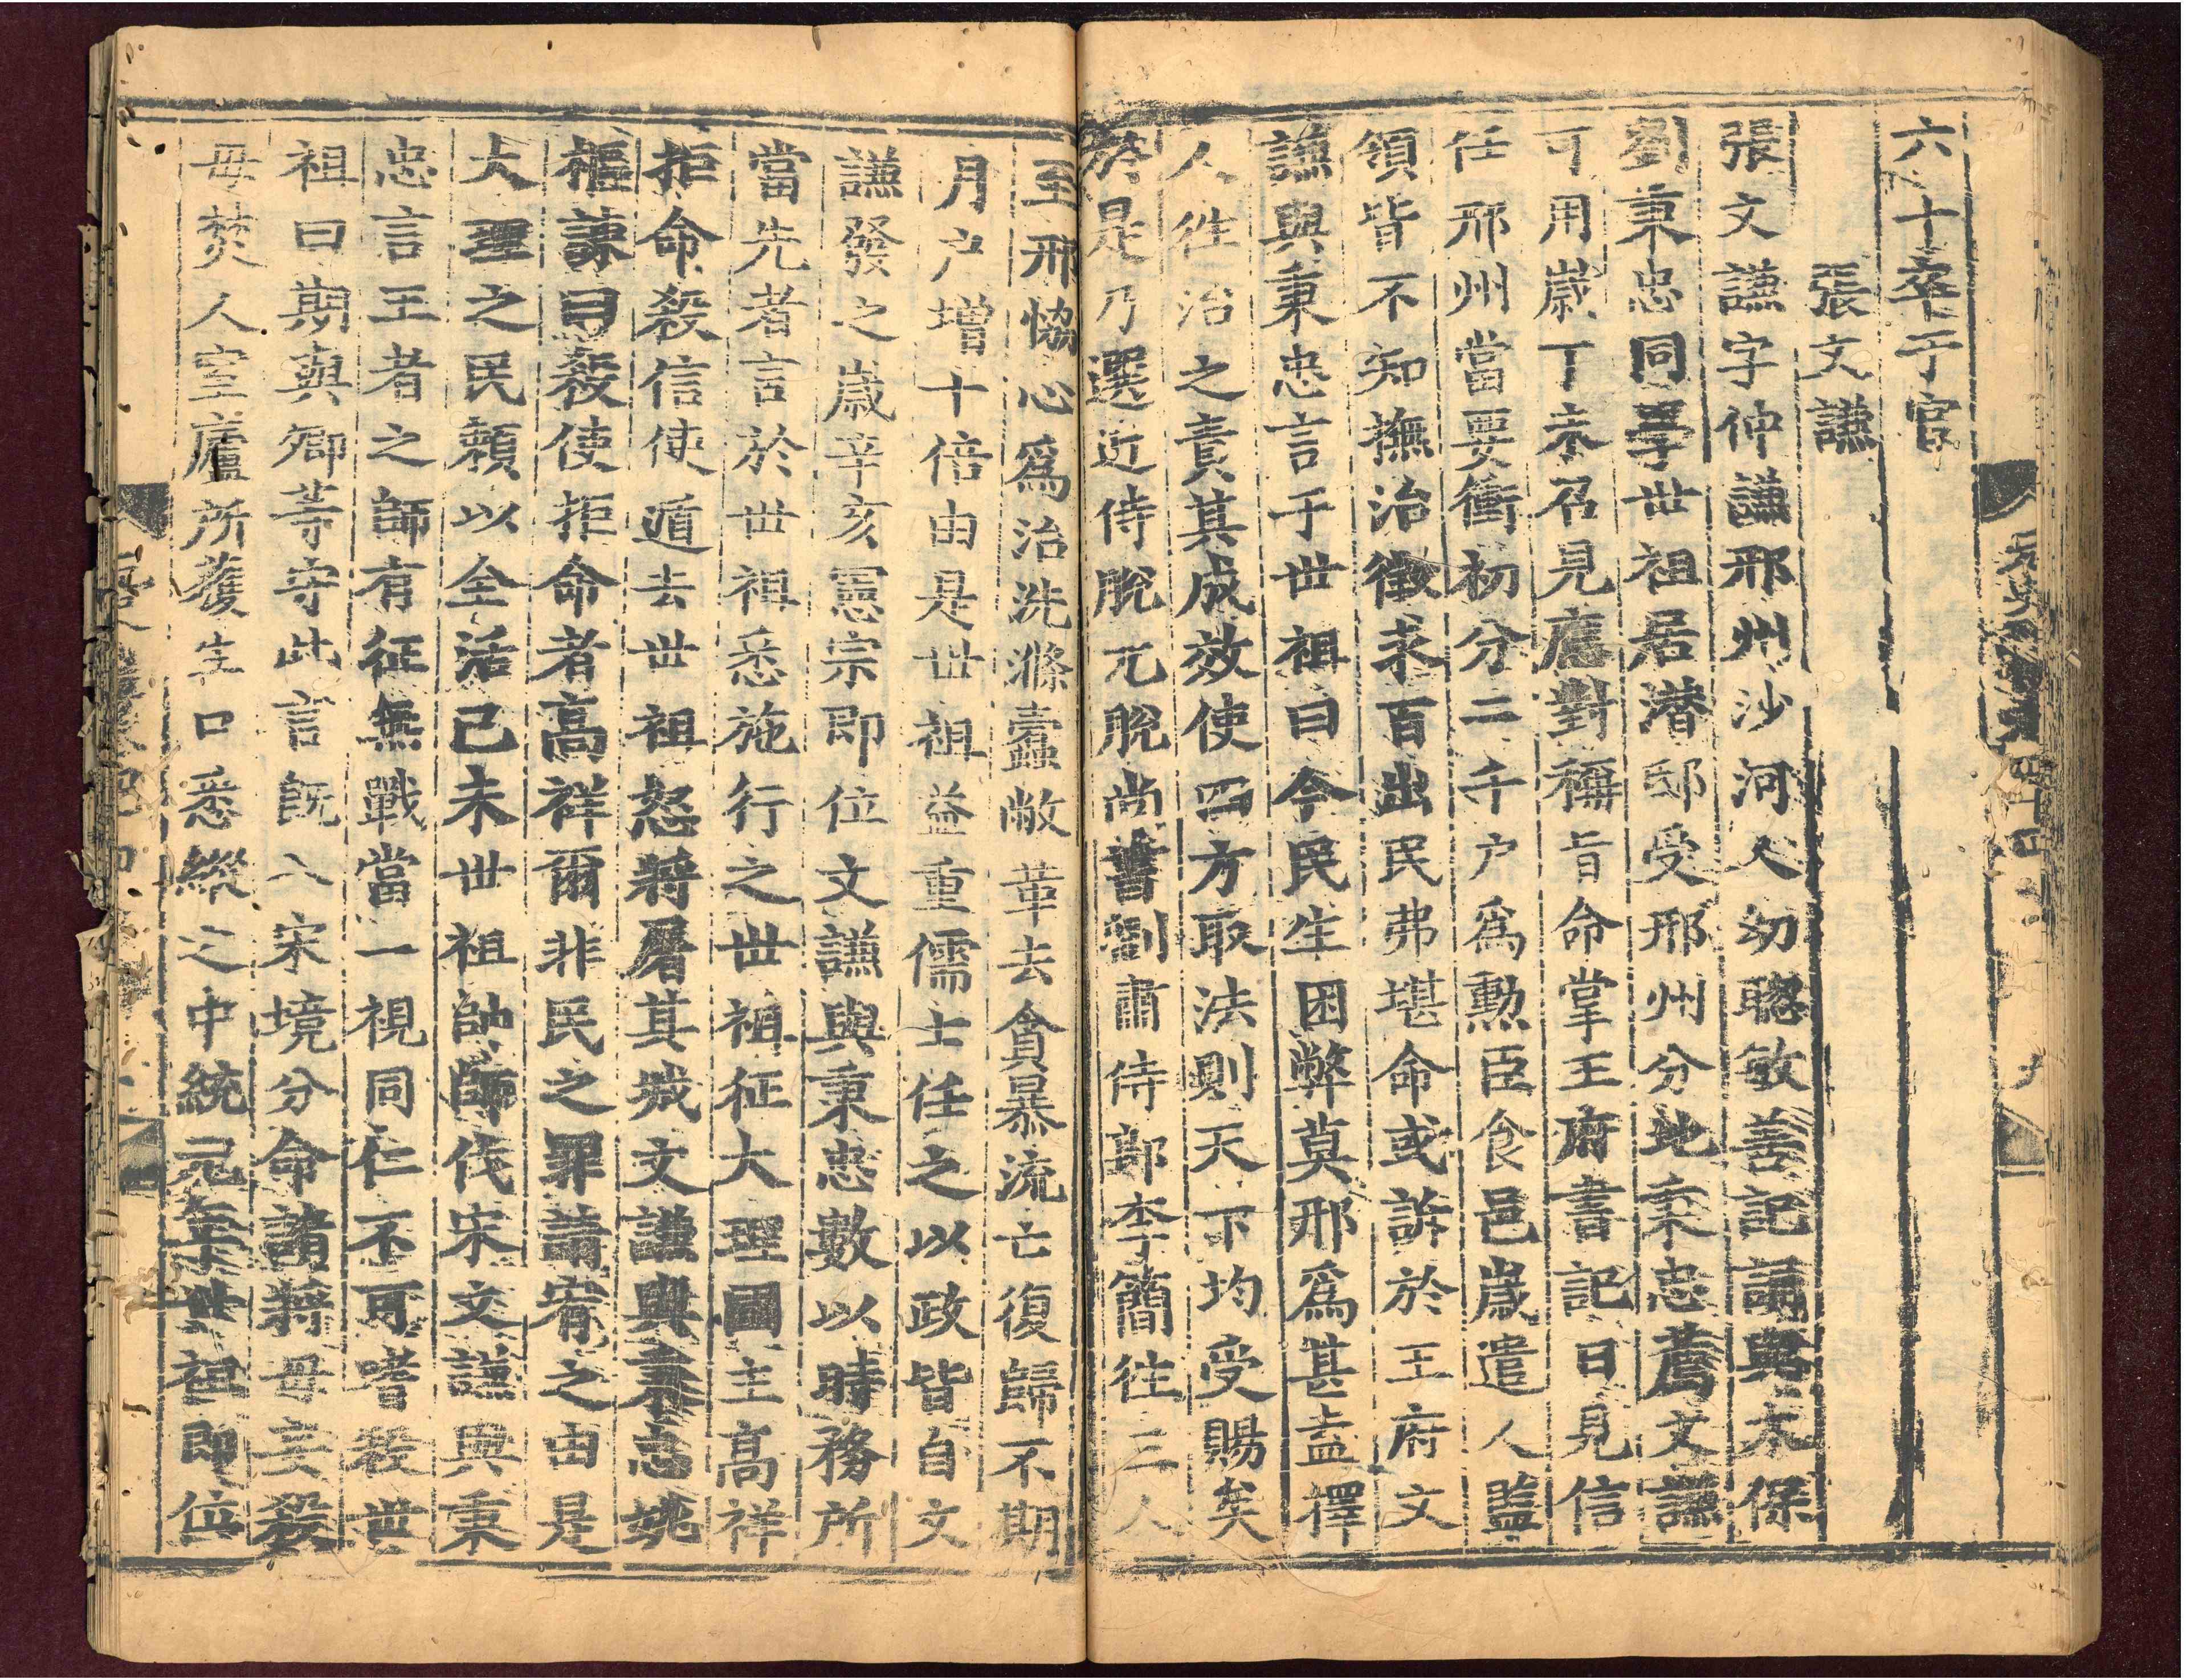 六十卒于官
張文謙
張文謙字仲謙邢州沙河人幼聰敏善記誦與太保
劉秉忠同學世祖居潛邸受邢州分地秉忠薦文謙
可用歲丁未召見應對稱旨命掌王府書記日見信
任邢州當要衝初分二千户爲勲臣食邑歲遣人監
領皆不知撫治徵求百出民弗堪命或訴於王府文
謙與秉忠言于世祖曰今民生困弊莫邢爲甚盍擇
人徃治之責其成效使四方取法則天下均受賜矣
於是乃選近侍脫兀脫尚書劉肅侍郎李簡徃三人
至邢恊心爲治洗滌蠹敝革去貪暴流亡復歸不期
月户增十倍由是世祖益重儒士任之以政皆自文
謙發之歲辛亥憲宗即位文謙與秉忠數以時務所
當先者言於世祖悉施行之世祖征大理國主高祥
拒命殺信使遁去世祖怒將屠其城文謙與秉忠姚
樞諫曰殺使拒命者高祥爾非民之罪請宥之由是
大理之民頼以全活己未世祖帥師伐宋文謙與秉
忠言王者之師有征無戰當一視同仁不可嗜殺世
祖曰期與卿等守此言旣入宋境分命諸將毋妄殺
毋焚人室廬所獲生口悉縱之中統元年世祖即位